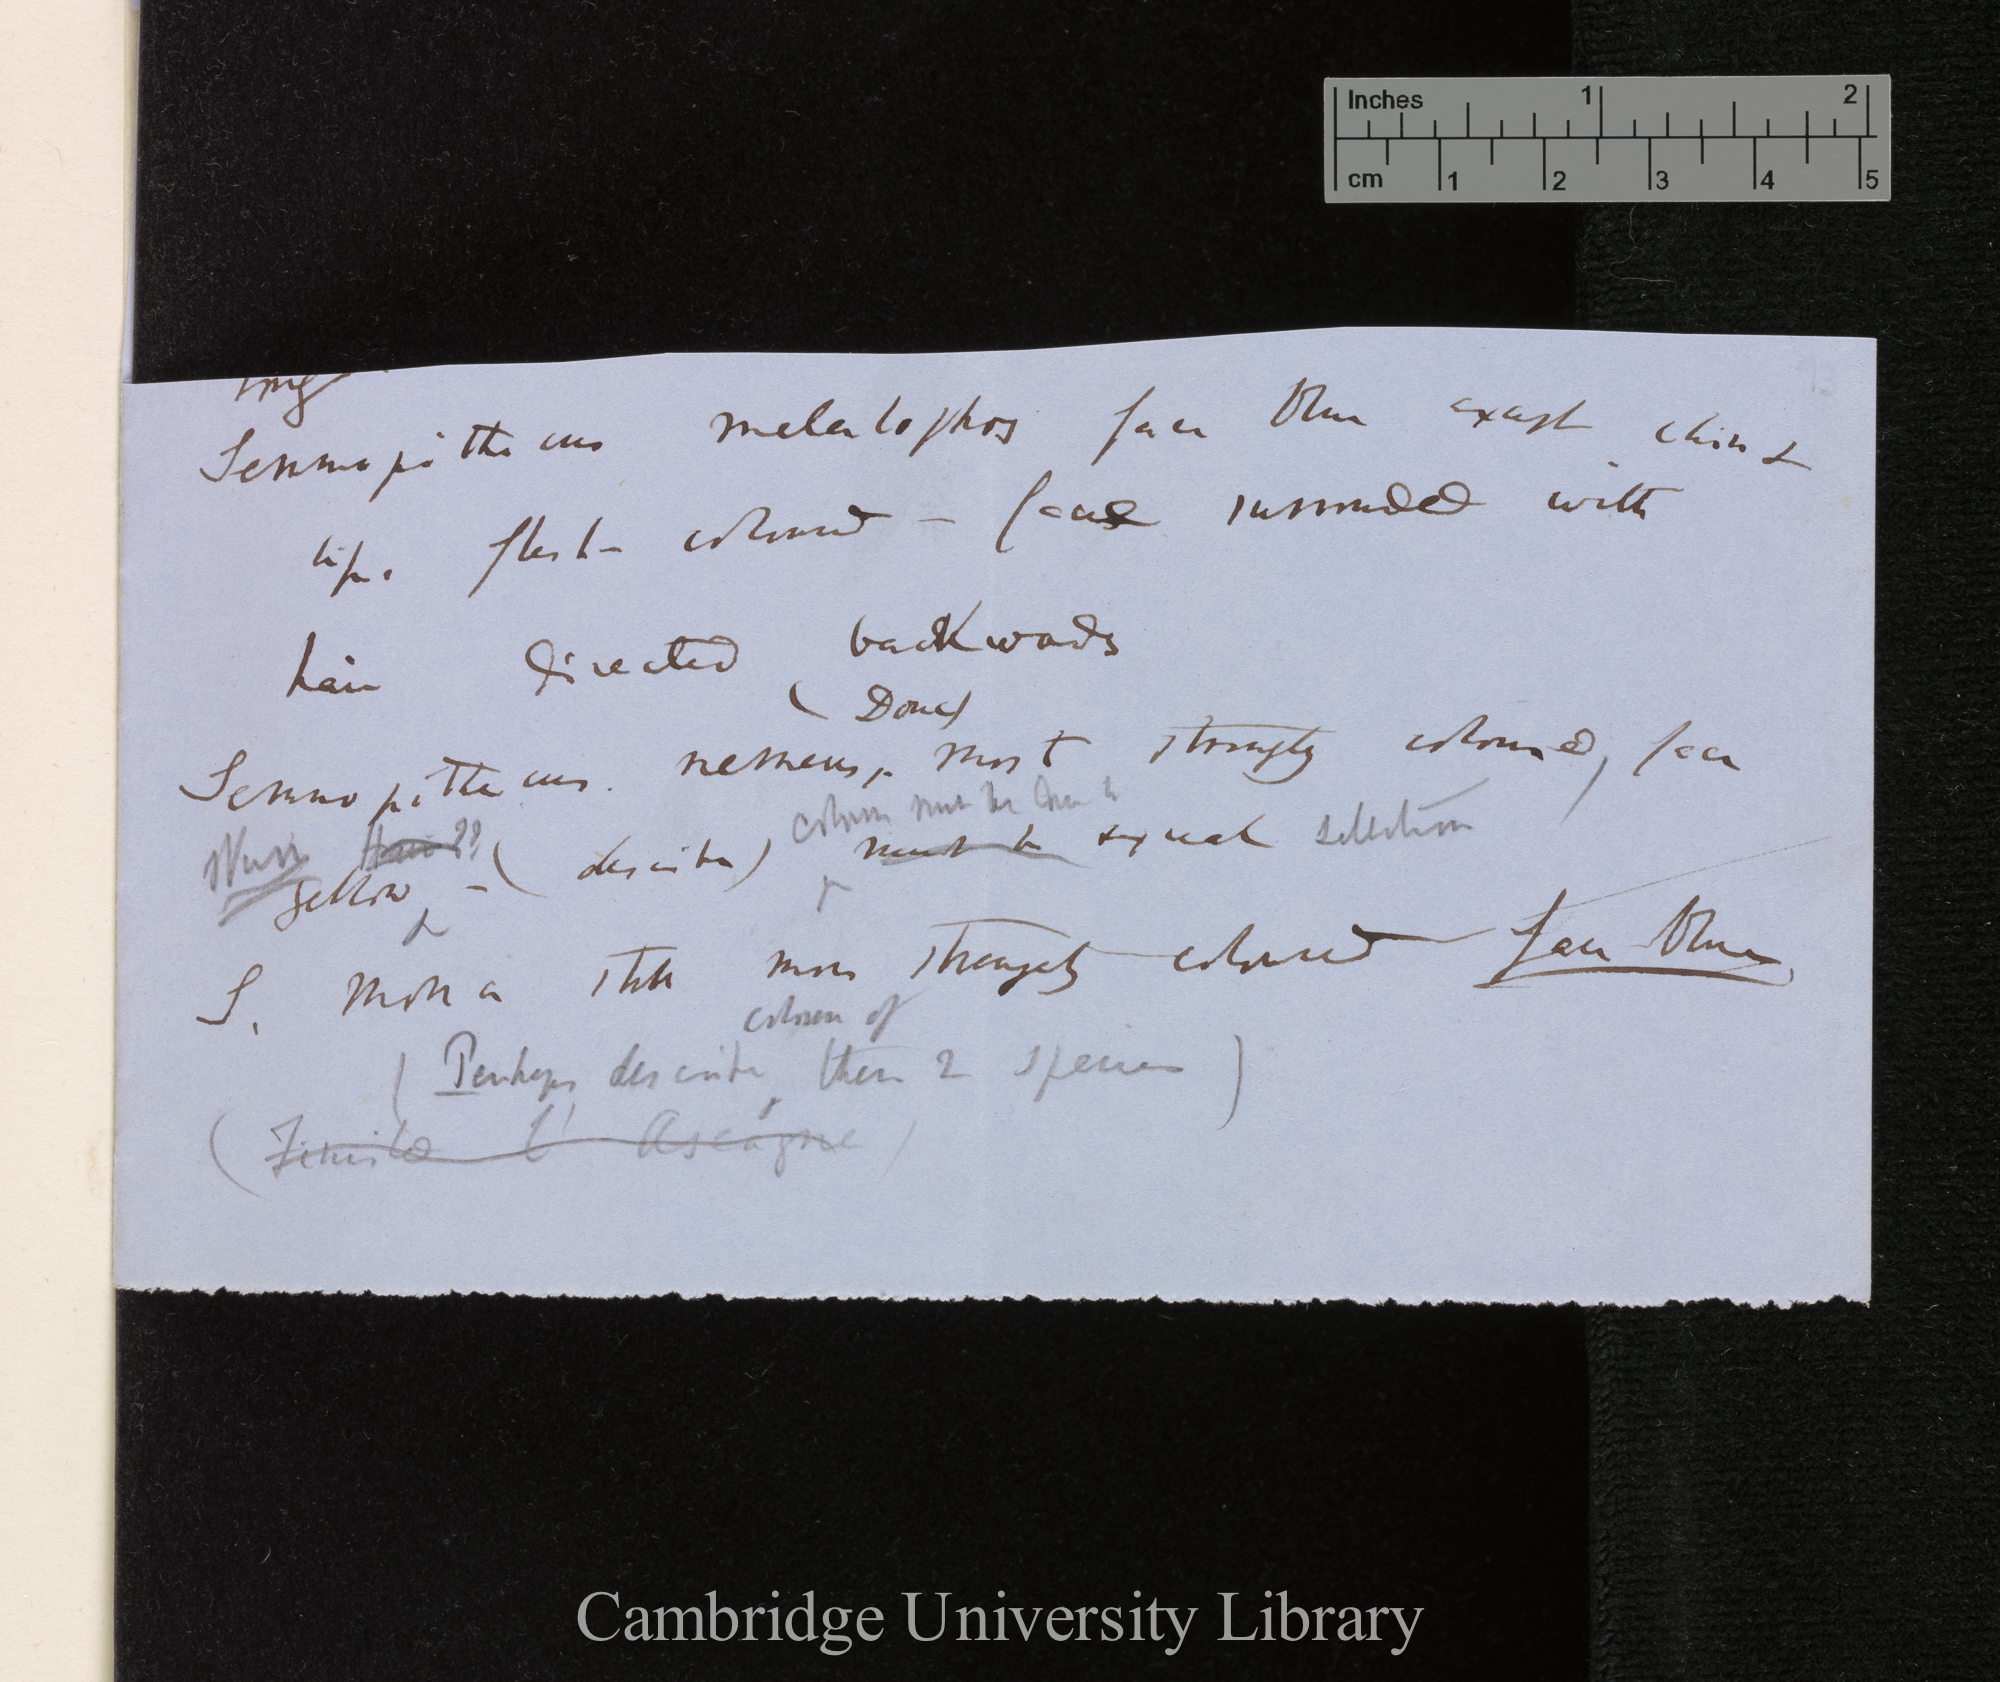 Inches 1 2
cm 1 2 3 4 5
Semnopithecus melalophos face blue except chin &
lips flesh-coloured — face surrounded with
hair directed backwards
(Done)
Semnopithecus. nemæus, most strongly coloured, face
colour must be due to
yellow — (describe) must be sexual selection
S. Mona still more strongly coloured face blue
colour of
(Perhaps describe these 2 species)
(Finish l' Ascagne)
Cambridge University Library